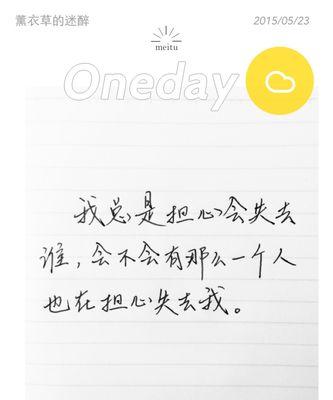 薰衣草的迷醉
2015/05/23
meitu
Oneday
我总是担心会失去
谁，会不会有那么一个人
也在担心失去我。